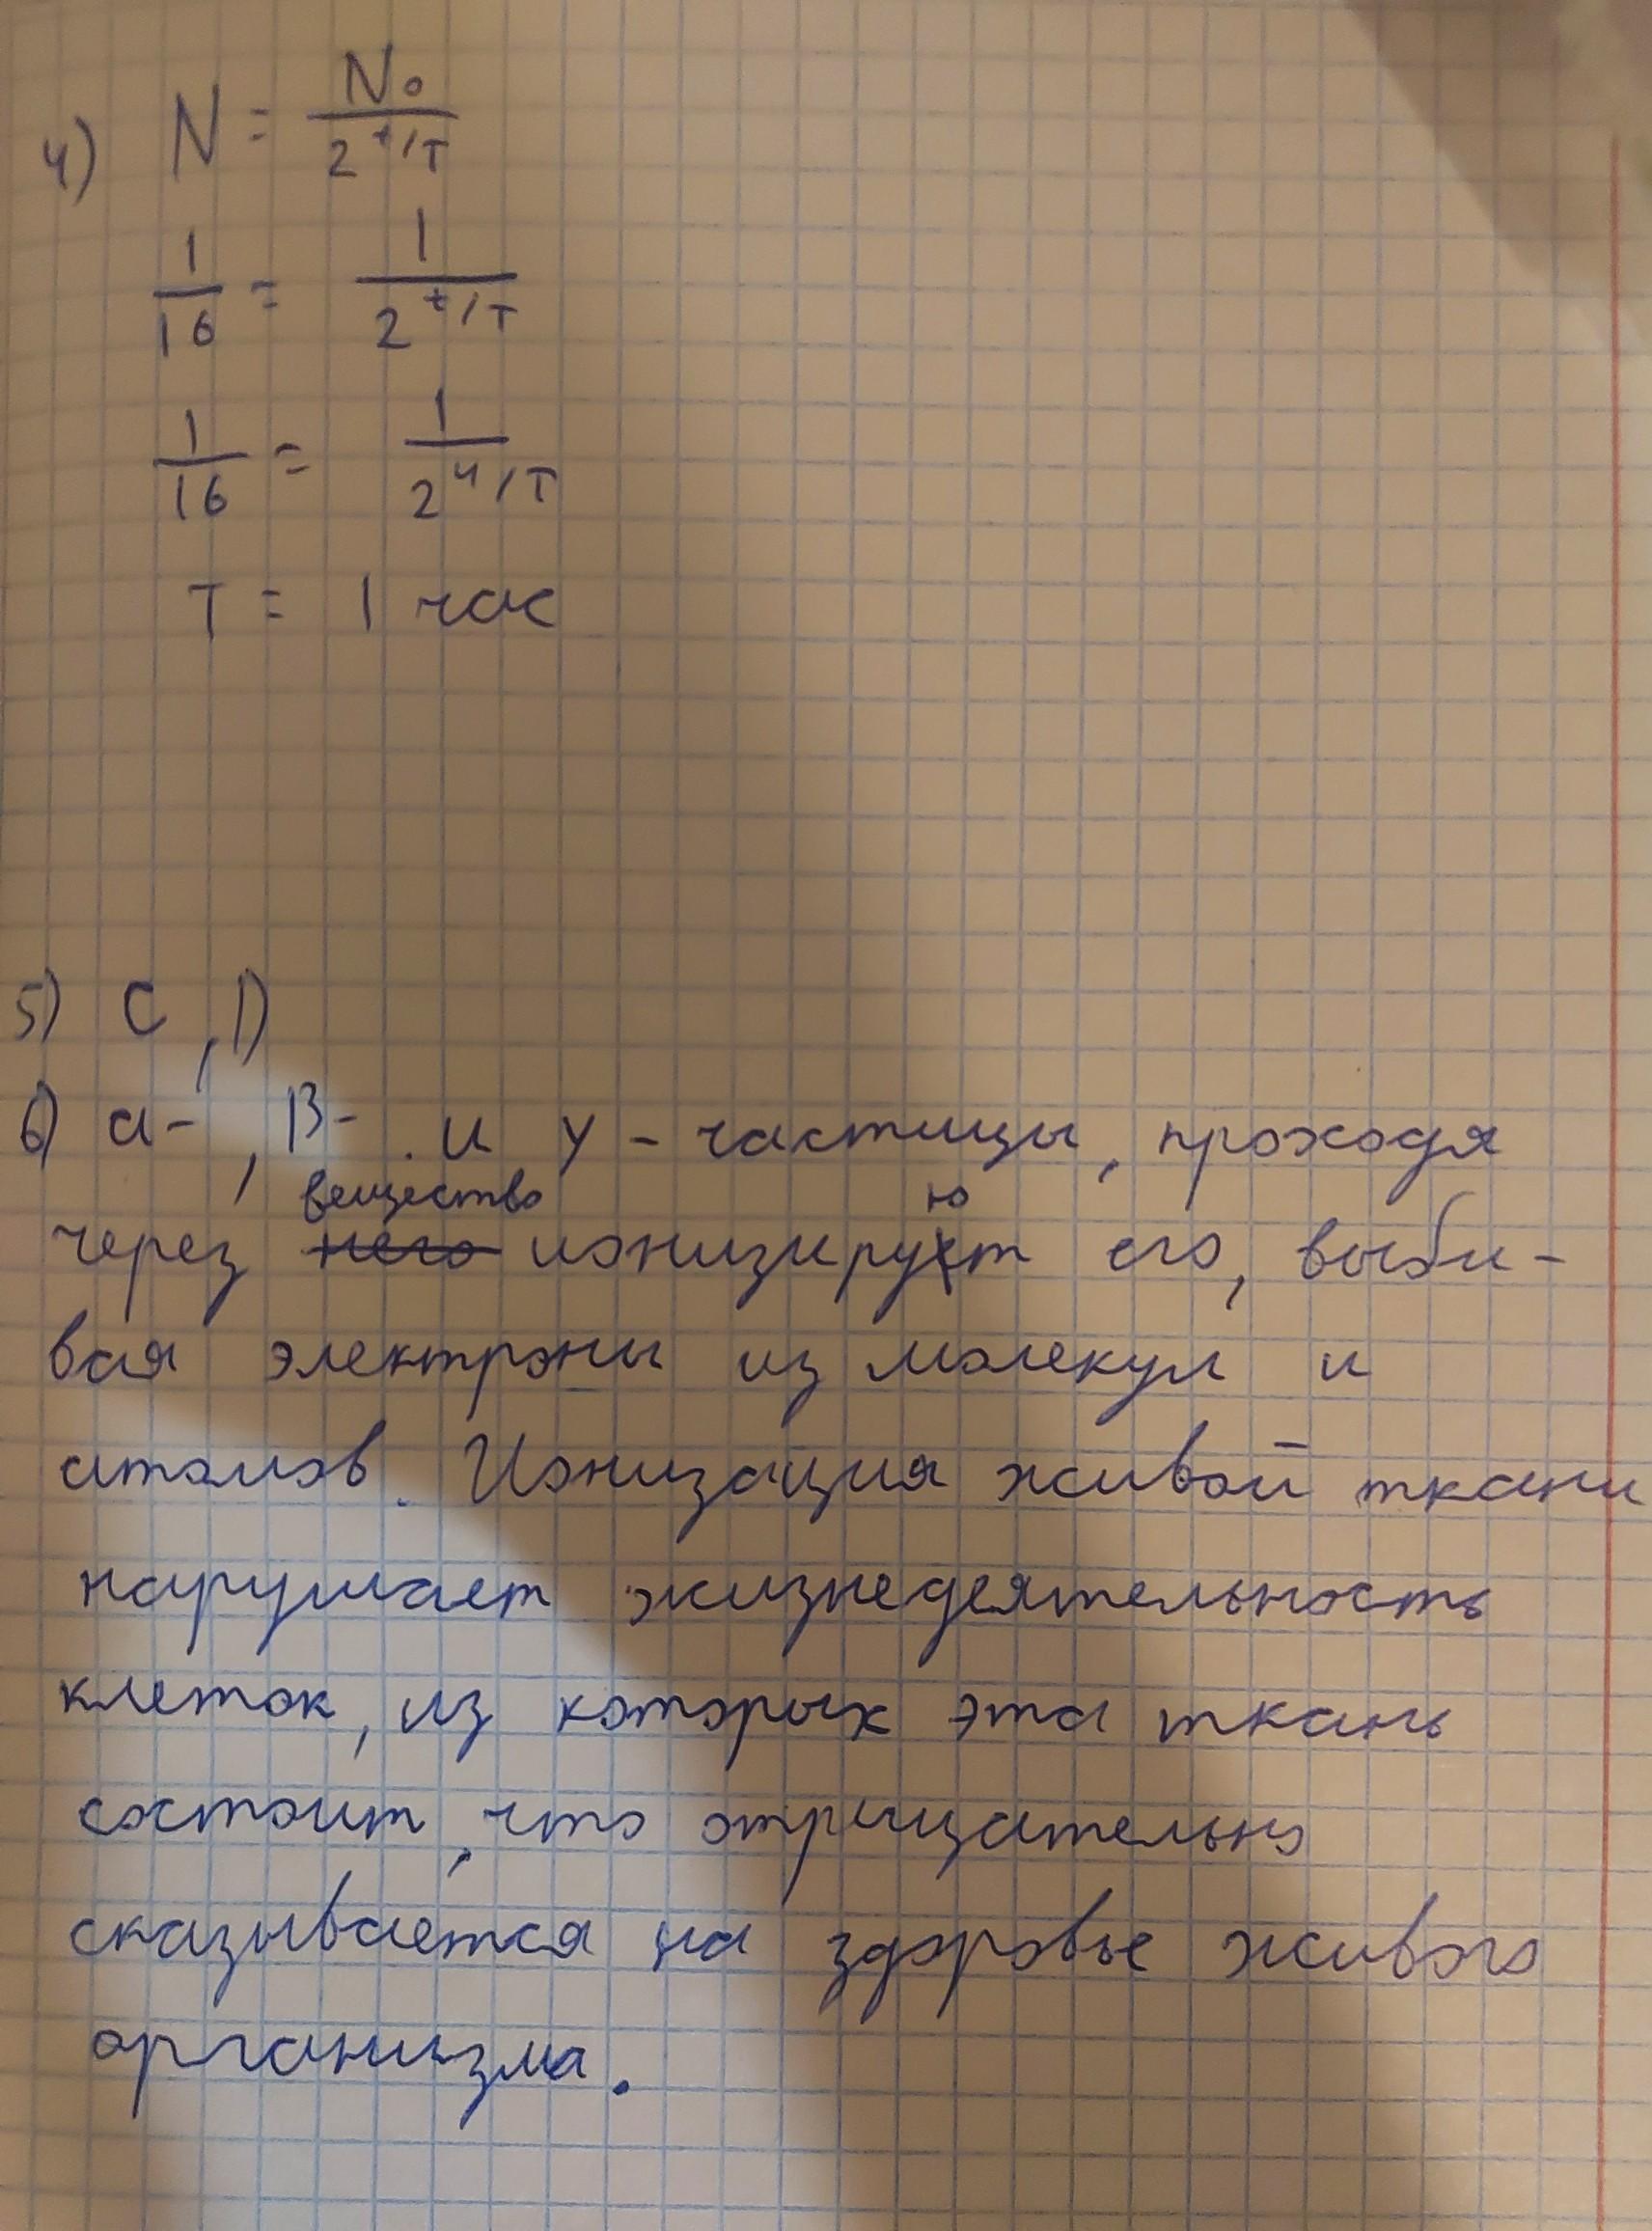 4) N = N₀ / 2^(t/T)
1/16 = 1 / 2^(t/T)
1/16 = 1 / 2^(4/T)
T = 1 час
5) C, D
6) а-, В- и γ-частицы, проходя
через вещество ионизируют его, выби-
вая электроны из молекул и
атомов. Ионизация живой ткани
нарушает жизнедеятельность
клеток, из которых эта ткань
состоит, что отрицательно
сказывается на здоровье живого
организма.